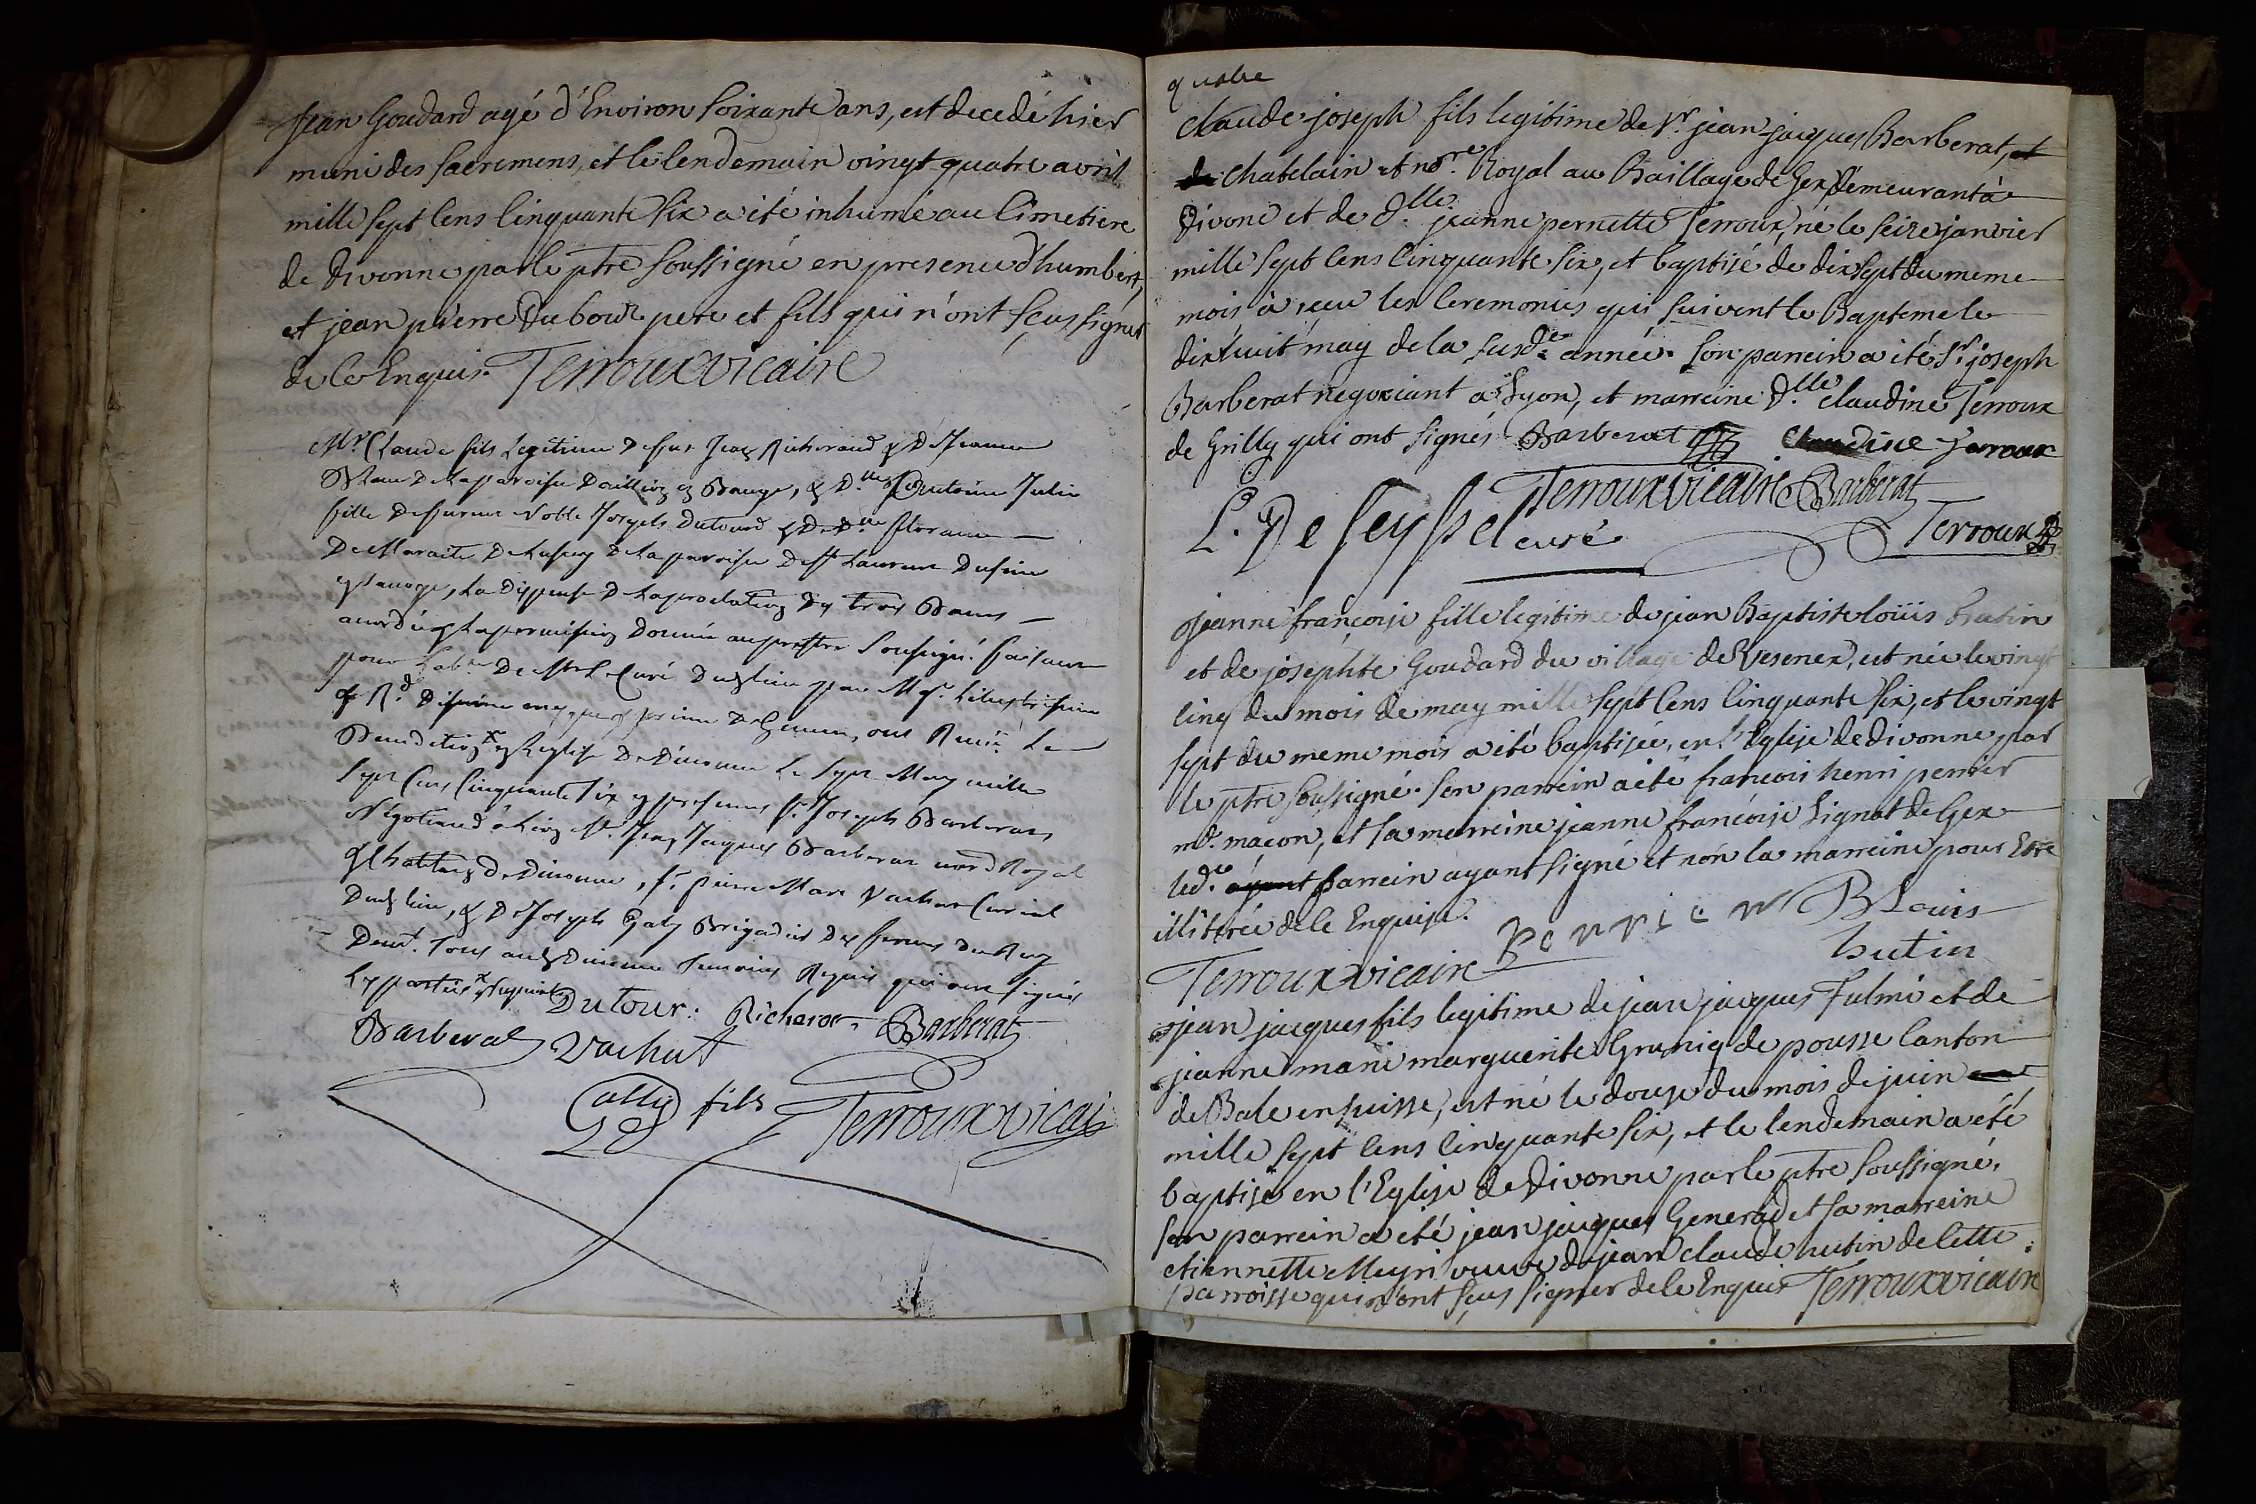 Jean Goudard agé d'Environ soixante ans, est decedé hier
muni des sacremens, et le lendemain vingt quatre avril
mille sept Cens Cinquante six a été inhumé au Cimetiere
de Divonne par le ptre soussigné en presence d'humbert,
et jean pierre Dubout pere et fils qui n'ont sçus signer
de ce Enquis. Terroux vicaire
Mr. Claude fils Legitime de feu Jean Richerand & de Jeanne
de la paroisse
fille de Noble Joseph Dutour & de Dlle
De la paroisse de St Laurent
La dispense de la proclamation des trois Bans
la permission Donnée au prestre Soussigné faisant
pour De Mr Le Curé Dudt lieu par Mgr
Eveque & prince de Geneve, ont Receu La
Benediction en Leglise De Divonne Le Sept May mille
Sept Cens Cinquante Six en presence Sr. Joseph Barberat
Négotiand à Lion Sr. Jean Jaques Barberat Royal
& Chatelain de Divonne, Sr. pierre Marc Vachat Curial
Dudt lieu, & De Joseph Gaty Brigadier des fermes du Roy
tous audt Divonne temoins Requis qui ont signés
Les parties
Dutour. Richerot. Barberat
Barberat Vachat
Catty fils Terroux vicai
quatre
Claude joseph fils legitime de Sr. jean jacques Barberat, et
de chatelain et nore. Royal au Baillage de Gex Demeurant à
Divone et de Dlle. jeanne pernette Terroux, né le seize janvier
mille sept Cens Cinquante six, et baptisé de dix sept du meme
mois à reçu les Ceremonies qui suivent le Bapteme le
dix huit may de la susde. année. son parrein a été Sr. joseph
Barberat negociant à Lyon, et marreine Dlle. claudine Terroux
de Grilly qui ont signés Barberat Claudine Terroux
Terroux vicaire Barberat
L. De Seyssel curé Terroux
Jeanne françoise fille legitime de jean Baptiste loüis hutin
et de josephte Goudard du village de Vesenex, est née le vingt
Cinq du mois de may mille sept Cens Cinquante six, et le vingt
sept du meme mois a été baptisée, en l'Eglise de divonne par
le ptre soussigné. son parrein a été francois henri perrier
me. maçon, et sa marreine jeanne francoise Lignot de Gex
ledt. ayant parrein ayant signé et non la marreine pour Etre
illitérée de le Enquise.
Perrier B Louis
hutin
Terroux vicaire
jean jacques fils legitime de jean jacques Fulmi et de
jeanne marie marguerite Gruniq de pousse Canton
de Bale en suisse, est né le douze du mois de juin
mille sept Cens Cinquante six, et le lendemain a été
baptisé en l'Eglise de Divonne par le ptre soussigné.
son parrein a été jean jacques Generod et sa marreine
etiennette Meyri veuve de jean claude hutin de Cette
parroisse qui n'ont sçus signer de le Enquis Terroux vicaire